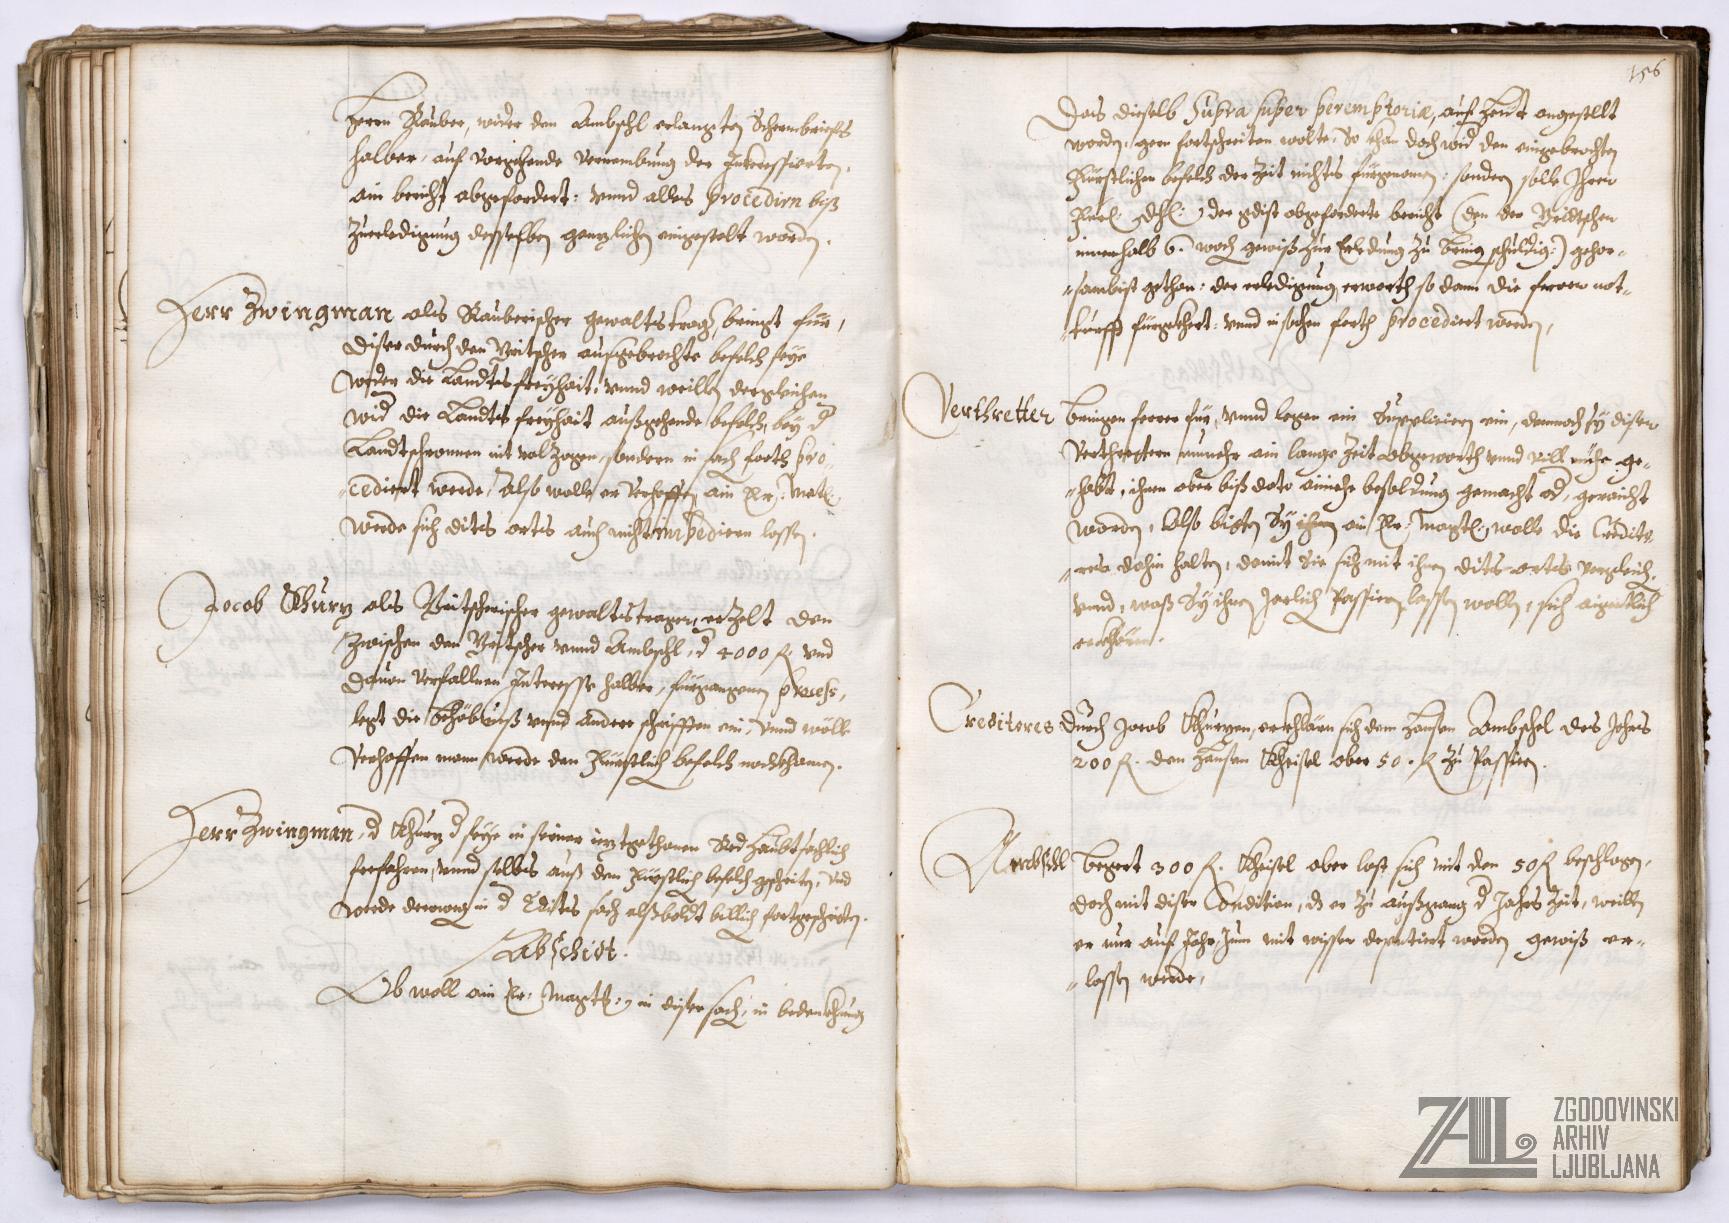 Herrn Rauber, wider den Ambschl erlangten Schermbrieffs
halber, auf vorgehende vernembung der Interessierten,
ain bericht abgefordert: vnnd alles procedirn biß
Zuerledigung desselben genzlichen eingestelt worden.
Herr Zwingman als Rauberischer gewaltstrager bringt für,
diser durch den außgebrachte befelch seye
wider die Landtsfreyhait, vnnd weillen dergleichen
wider die Landts freyhait außgehende befelch, bey d
Landtschrannen nit volzogen, sondern in sach forth pro-
-cediert werde, Also wolle er verhoffen ain Er: Matl:
werde sich dits orts auch nicht impediern lassen.
Jacob Khurz als gewaltstrager, erzelt den
zwischen den vnnd Ambschl, d 4000 fl. vnd
dauon verfallnen Interesse halber, fürgangenen process,
legt die vnnd andere schrifften ein, vnnd wölle
verhoffen man werde den Fürstlich befelch nachkhomen.
Herr Zwingman, d Khurz d seye in seiner ietztgethanen Red haubtsachlich
vnnd selbes auß dem Fürstlich befelch vnd
werde derweg in d sach alßbaldt billich fortgeschriten.
Abschidt.
Ob woll ain Er: Magtl: in diser sach, in bedenkhung
156
Das dieselb Supra super peremptoriæ, auf heut angestelt
worden, gern fortschreiten wolte, So khan doch wid den eingebrachten
Fürstlichen befelch der Zeit nichts fürgenomen, sondern solle Ihrer
Fürl: Dhl: der gdist abgeforderte bericht (den der
innerhalb 6. woch gewiß zur Erledung zu bring schuldig:) gehor-
-sambist gethan: der erledigung erwarth so dann die ferer not-
-turfft fürgekhert: vnnd in sachen forth procediert werden,
Verthretter bringen ferer für, vnnd legen ein Supplicien ein, demnach sy diser
Verthrettern nunmehr ein lange Zeit abgewarth vnnd vill mühe ge-
-habt, ihnen aber biß dato ainiche besoldung gemacht od, gereicht
worden, Also bitten Sy ain Er: Magtl: wolle die Credito-
-res dahin halten, damit Sie sich mit ihnen dits orts vergleich,
vnnd, waß Sy ihnen Jarlich Passiern lassen wollen, sich aigentlich
erkhlären.
Creditores durch Jacob Khurzen, erkhlären sich dem Hansen Ambschel des Jahrs
200 fl. dem Hansen Khreisel aber 50. fl zu Passiern.
Ambschl begert 300 fl. Khreisel aber last sich mit den 50 fl beschlagen,
doch mit diser Condition, dz er zu außgang d Jahrs Zeit, weillen
er nur auf Jahr deputiert worden gewiß er-
-lassen werde,
ZAL
ZGODOVINSKI
ARHIV
LJUBLJANA